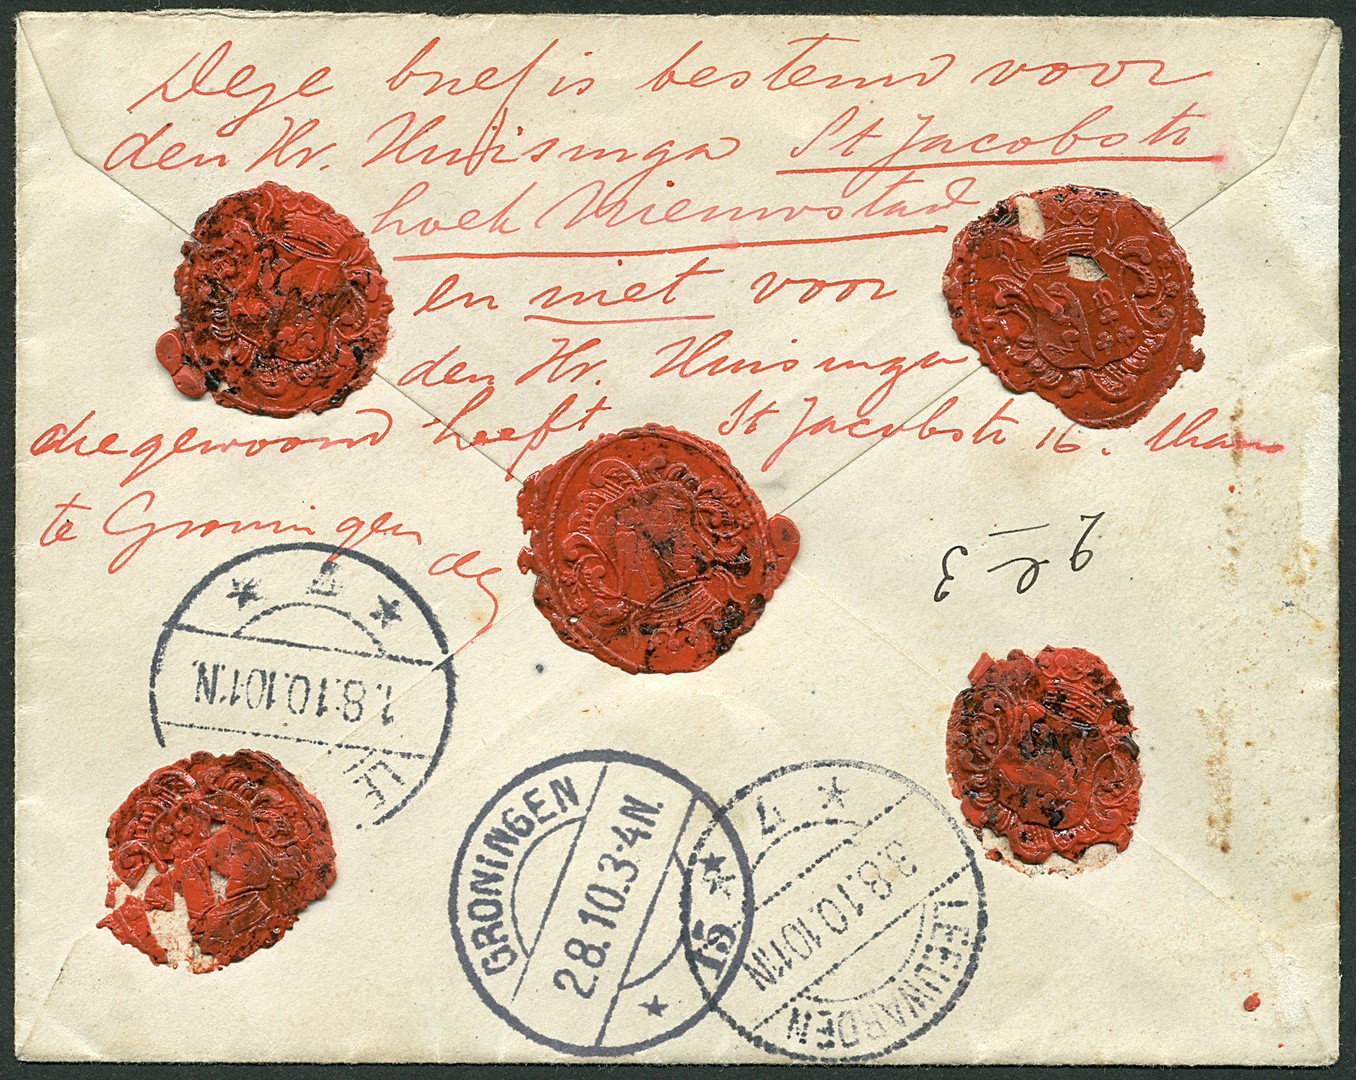 Deze brief is bestemd voor
den Hr. Huisinga St Jacobstr
hoek Nieuwstad
en niet voor
den Hr. Huisinga
die gewoond heeft St Jacobstr 16. thans
te Groningen
LE
1.8.10.10-11N.
GRONINGEN
2.8.10.3-4N.
15
LEEUWARDEN
3.8.10.10-11N
17